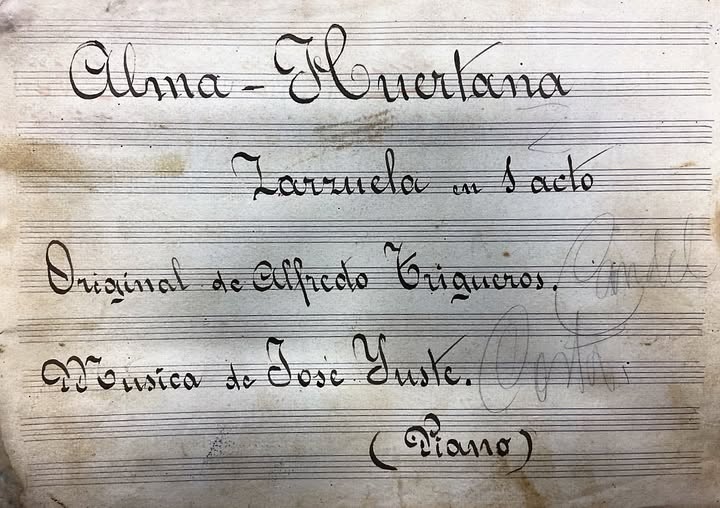 Alma - Huertana
Zarzuela en 1 acto
Original de Alfredo Trigueros.
Musica de José Yuste.
(Piano)